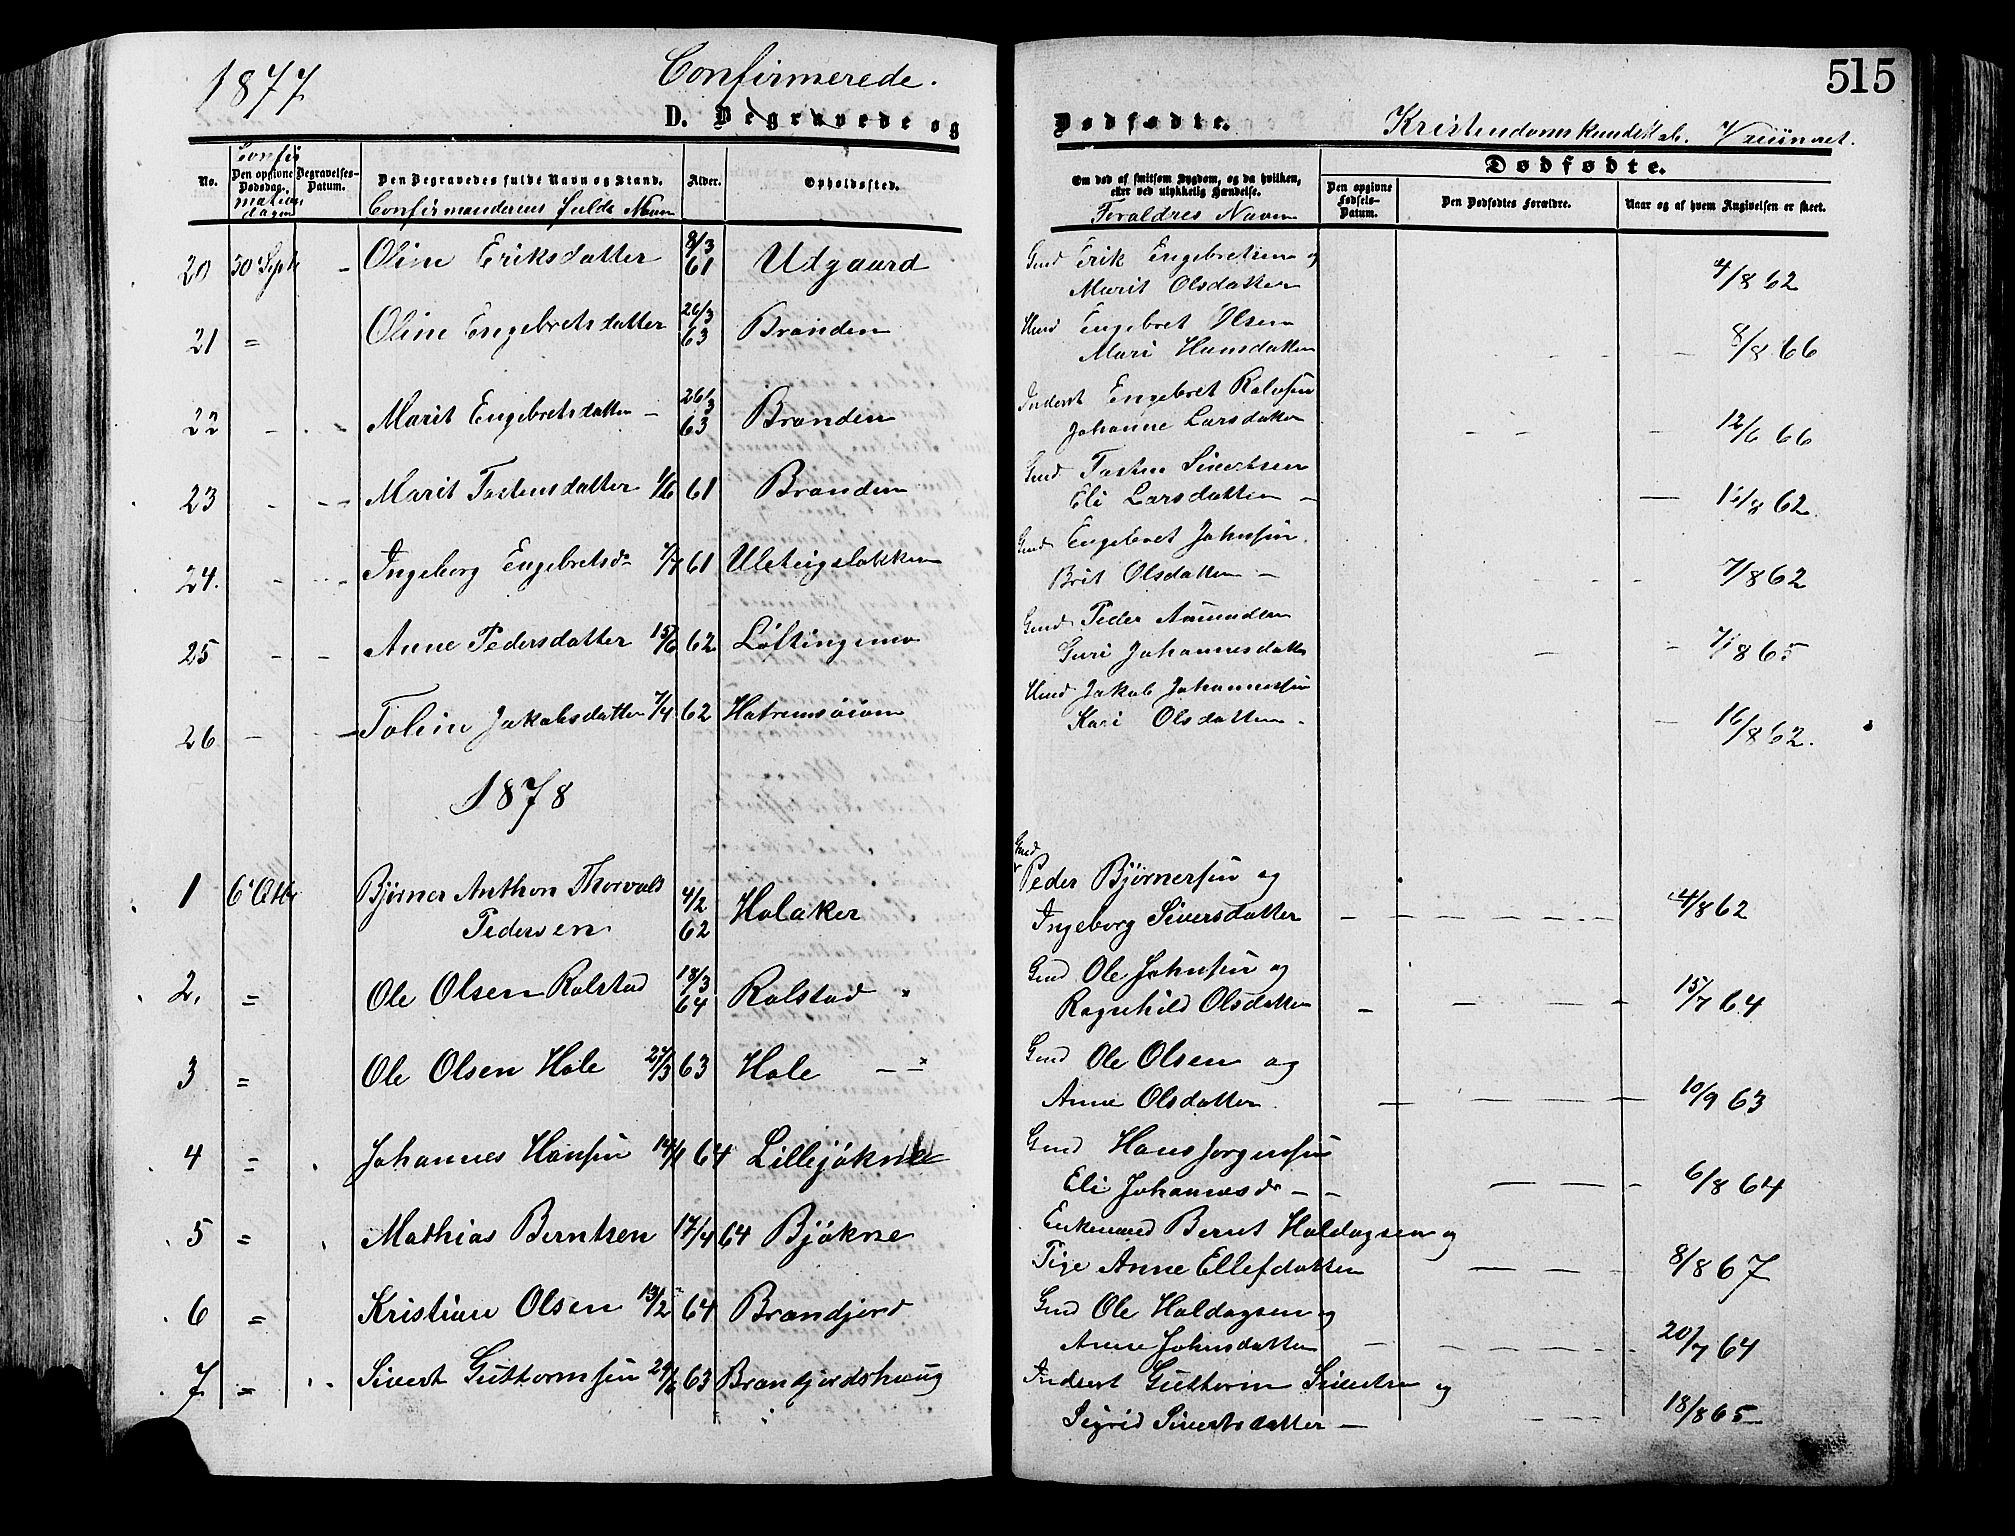 1877
Confirmerede.
515
D. Begravede og
Dødfødte.
Kristendomskundskab. Vaccineret.
No.
Confir
Den opgivne Dødsdag.
mations
dagen
Begravelses-Datum.
Den Begravedes fulde Navn og Stand.
Confirmanderines fulde Navn
Alder.
Opholdssted.
Om død af smitsom Sygdom, og da hvilken,
eller ved ulykkelig Hændelse.
Forældres Navn
Dødfødte.
Den opgivne Fødsels-Datum.
Den Dødfødtes Forældre.
Naar og af hvem Angivelsen er skeet.
20 30 Septr - Oline Eriksdatter 8/3 61 Utgaard
Gmd Erik Engebretsen og
Marit Olsdatter 4/8 62
21 = Oline Engebretsdatter 26/3 63 Branden
Hmd Engebret Olsen
Mari Hansdatter 8/8 66
22 - - Marit Engebretsdatter - 26/3 63 Branden
Inderst Engebret Rolvsen
Johanne Larsdatter 12/6 66
23 - - Marit Tostensdatter 1/6 61 Branden
Gmd Tosten Sivertsen
Eli Larsdatter - /8 62
24. - - Ingeborg Engebretsdr 7/7 61
Gmd Engebret Johnsen.
Brit Olsdatter - 7/8 62
25 - - Anne Pedersdatter 15/6 62 Løftingsmo
Gmd Peder Amundsen
Guri Johannesdatter 7/8 65
26 - - Tolin Jakobsdatter 7/4 62
Hmd Jakob Johannessen
Kari Olsdatter. 16/8 62.
1878
1 6' Octbr Bjørner Anthon Thorvald
Pedersen 4/2 62 Holaker
Gmd
Peder Bjørnersen og
Ingeborg Siversdatter 4/8 62
2. = Ole Olsen Rolstad 18/3 64 Rolstad
Gmd Ole Johnsen og
Ragnhild Olsdatter 15/7 64
3 = Ole Olsen Hole 27/3 63 Hole
Gmd Ole Olsen og
Anne Olsdatter. 10/9 63
4 = Johannes Hansen 64 Lillejøkne
Gmd Hans Jørgensen
Eli Johannesdr - - 6/8 64
5 = Mathias Berntsen 17/4 64 Bjøkne
Enkemand Bernt Haldogsen og
Pige Anne Ellefdatter 8/8 67
6 = Kristian Olsen 13/2 64 Brandjord
Gmd Ole Haldogsen og
Anne Johnsdatter 20/7 64
7 = Sivert Guttormsen 29/6 63 Brandjordshaug
Inderst Guttorm Sivertsen og
Sigrid Sivertsdatter - 18/8 65